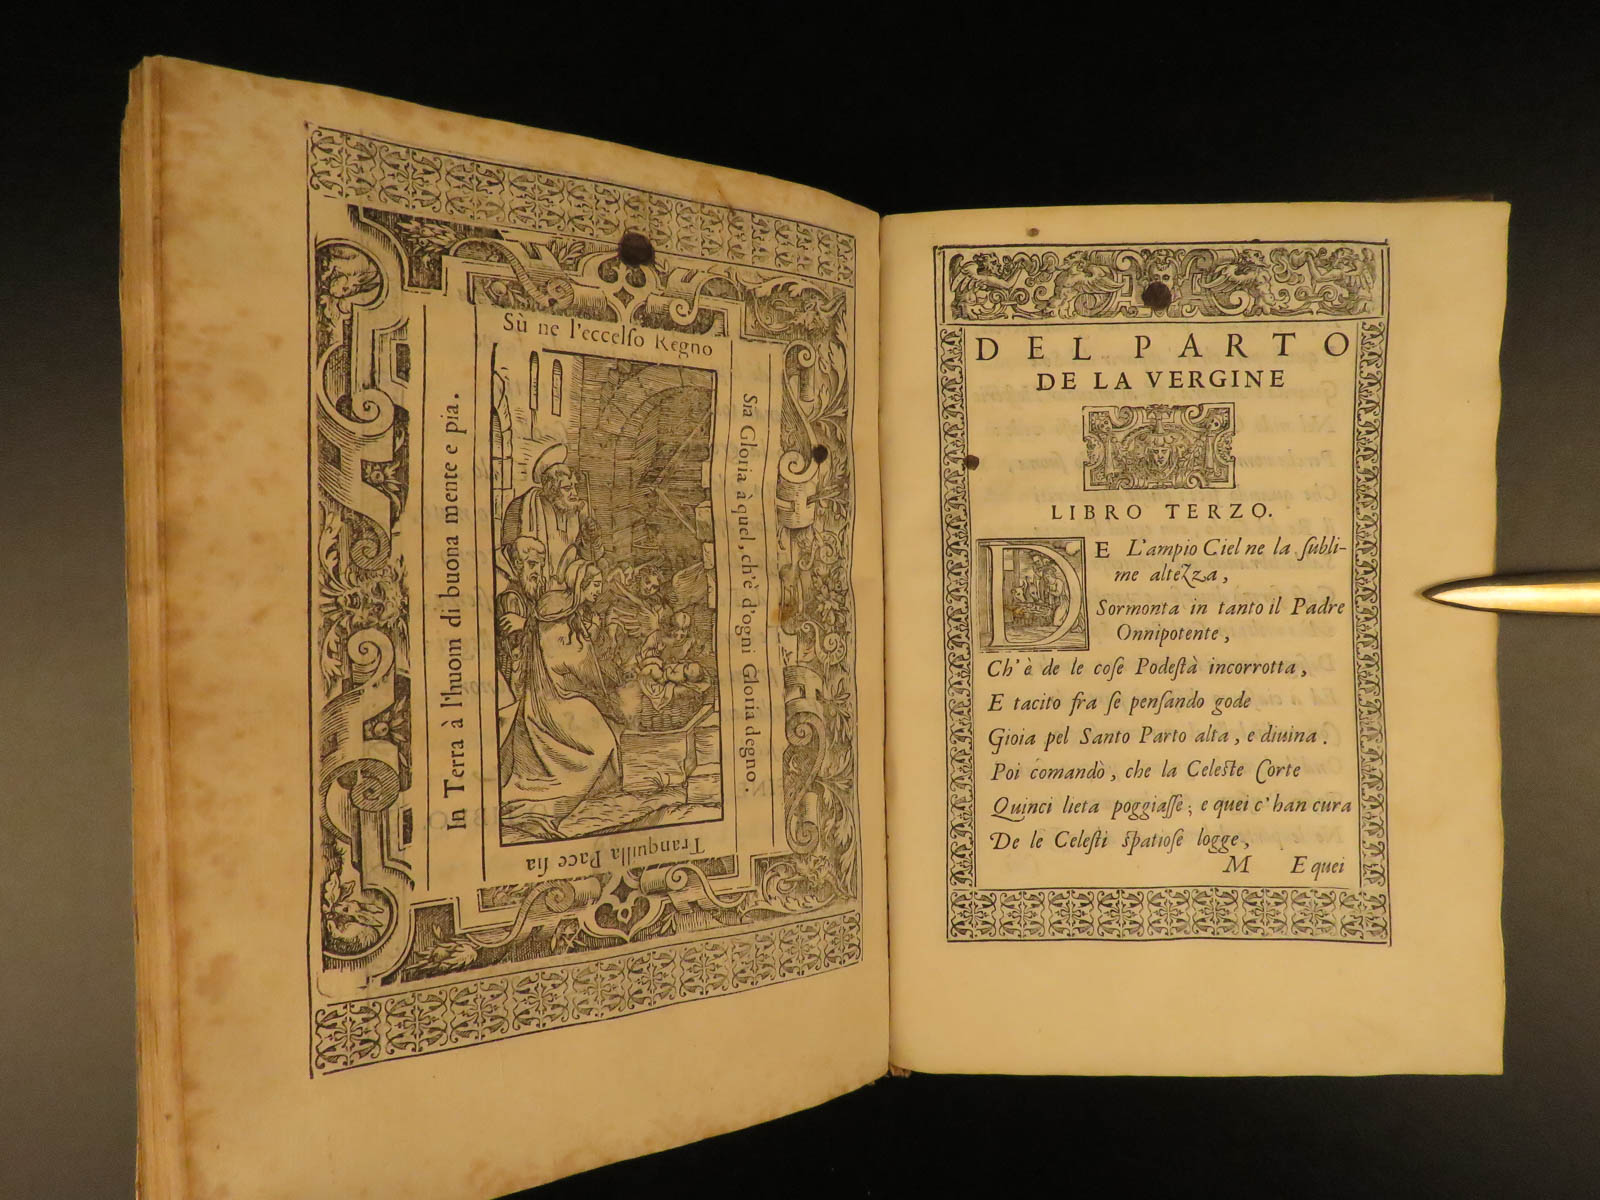 Sù ne l'eccelso Regno
Sia Gloria à quel, ch'è d'ogni Gloria degno.
In Terra à l'huom di buona mente e pia.
Tranquilla Pace sia
DEL PARTO
DE LA VERGINE
LIBRO TERZO.
DE L'ampio Ciel ne la subli-
me altezza,
Sormonta in tanto il Padre
Onnipotente,
Ch'è de le cose Podestà incorrotta,
E tacito fra se pensando gode
Gioia pel Santo Parto alta, e diuina.
Poi comandò, che la Celeste Corte
Quinci lieta poggiasse; e quei c'han cura
De le Celesti spatiose logge,
M E quei